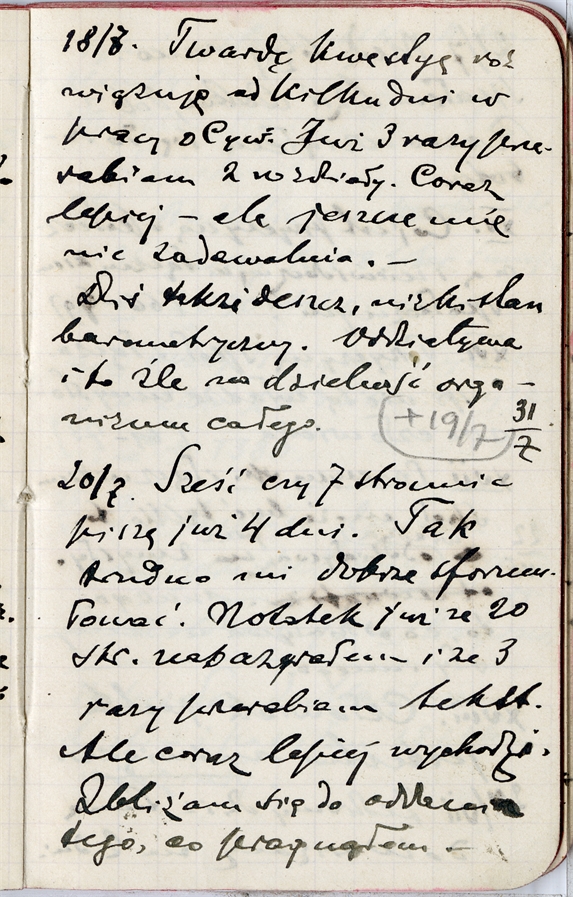 18/7. Twardą kwestyę roz
wiązuję od kilku dni w
pracy o Cyw. Już 3 razy prze-
rabiam 2 rozdziały. Coraz
lepiej – ale jeszcze mię
nie zadawalnia. –
Dziś także deszcz, nizki stan
barometryczny. Oddziaływa
i to źle na dzielność orga-
nizmu całego.
+19/7
31/7
20/7. Sześć czy 7 stronnic
piszę już 4 dni. Tak
trudno mi dobrze sformu-
łować. Notatek już ze 20
str. nabazgrałem i ze 3
razy przerabiam tekst.
Ale coraz lepiej wychodzi.
Zbliżam się do oddania
tego, co pragnąłem –